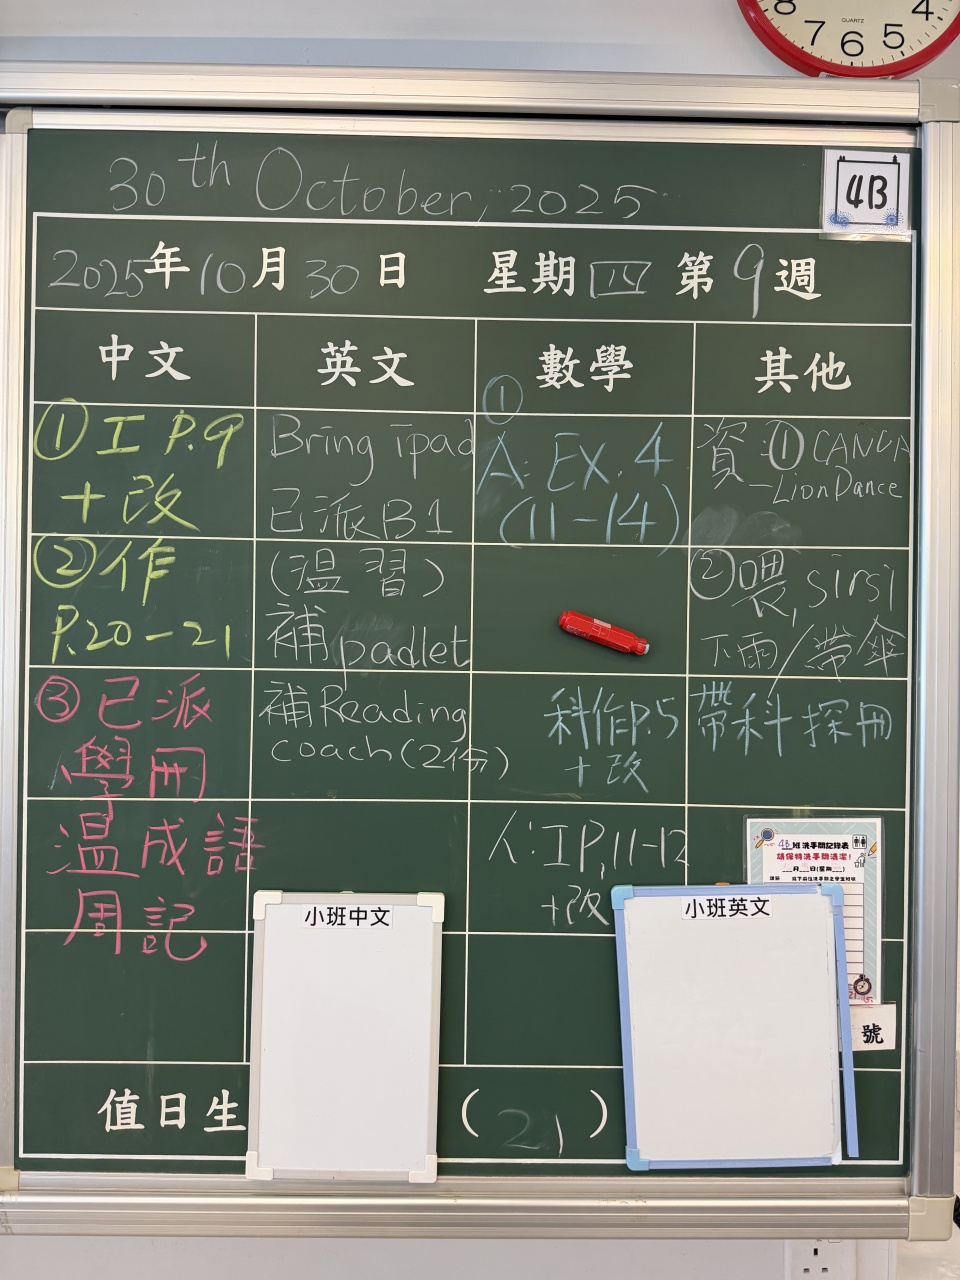 8 4
7 6 5
QUARTZ
30th October, 2025
4B
2025年10月30日 星期四 第9週
中文 英文 數學 其他
① 工 P.9
+改
② 作
P.20-21
③ 已派
學冊
溫成語
周記
Bring ipad
已派B1
(溫習)
補padlet
補Reading
coach(2份)
①
A: EX. 4
(11-14)
科作P.5
+改
人:工P,11-12
+改
資:① CANVA
-Lion Dance
② 喂, sirsi
下雨/帶傘
帶科探冊
4B班洗手間記錄表
請保持洗手間清潔!
月 日(星期 )
小班中文
小班英文
號
值日生 (21)